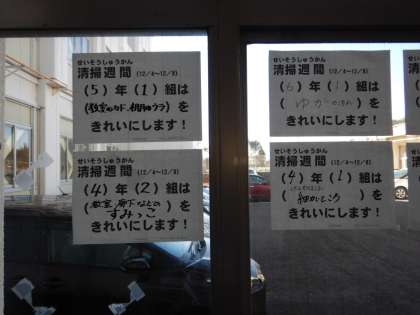 せいそうしゅうかん
清掃週間 (12/4〜12/8)
(5)年(1)組は
(教室のカド、机のウラ)を
きれいにします!
せいそうしゅうかん
清掃週間 (12/4〜12/8)
(4)年(2)組は
(教室、廊下などの
すみっこ)を
きれいにします!
せいそうしゅうかん
清掃週間 (12/4〜12/8)
(6)年(1)組は
(ゆか)を
きれいにします!
せいそうしゅうかん
清掃週間 (12/4〜12/8)
(4)年(1)組は
(細かいところ)を
きれいにします!